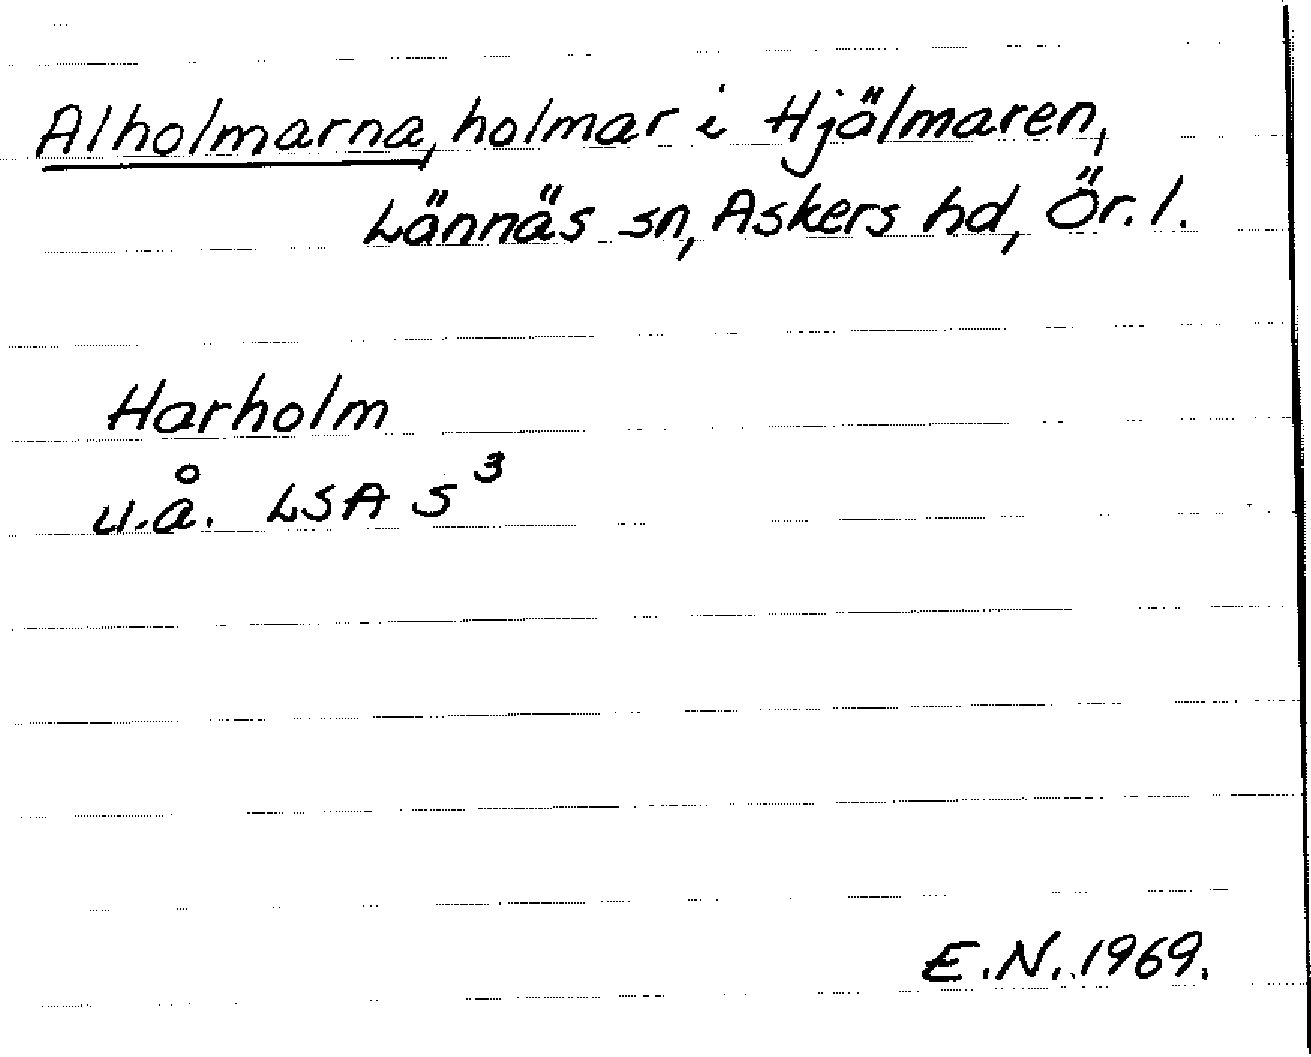 Alholmarna, holmar i Hjälmaren,
Lännäs sn, Askers hd, Ör. l.
Harholm
u.å. LSA S³
E.N. 1969.